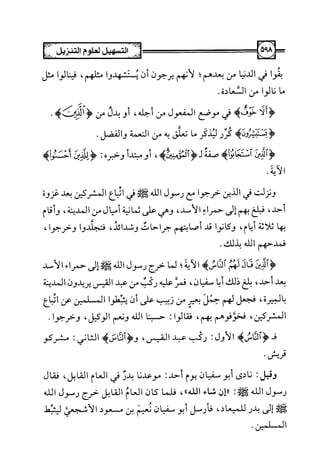 التسهيل لعلوم التنزيل
٥٩٨
بقُوا في الدنيا من بعدهم؛ لأنهم يرجون أن يُستشهدوا مثلهم، فينالوا مثل
ما نالوا من السَّعادة.
﴿أَلَّا خَوْفٌ﴾ في موضع المفعول من أجله، أو بدلٌ من ﴿الَّذِينَ﴾.
﴿يَسْتَبْشِرُونَ﴾ كُرِّر ليُذكَر ما تعلَّق به من النعمة والفضل.
﴿الَّذِينَ اسْتَجَابُوا﴾ صفةٌ لـ ﴿الْمُؤْمِنِينَ﴾، أو مبتدأ وخبره: ﴿لِلَّذِينَ أَحْسَنُوا﴾
الآيةَ.
ونزلت في الذين خرجوا مع رسول الله ﷺ في اتِّباع المشركين بعد غزوة
أحد، فبلغ بهم إلى حمراء الأسد، وهي على ثمانية أميال من المدينة، وأقام
بها ثلاثة أيام، وكانوا قد أصابتهم جراحاتٌ وشدائدُ، فتجلَّدوا وخرجوا،
فمدحهم الله بذلك.
﴿الَّذِينَ قَالَ لَهُمُ النَّاسُ﴾ الآيةَ؛ لما خرج رسول الله ﷺ إلى حمراء الأسد
بعد أحد، بلغ ذلك أبا سفيان، فمرَّ عليه ركْبٌ من عبد القيس يريدون المدينة
بالمِيرة، فجعل لهم حِمْلَ بعيرٍ من زبيب على أن يثبِّطوا المسلمين عن اتِّباع
المشركين، فخوَّفوهم بهم، فقالوا: حسبنا الله ونعم الوكيل، وخرجوا.
فـ ﴿النَّاسُ﴾ الأول: ركْب عبد القيس، و﴿النَّاسَ﴾ الثاني: مشركو
قريش.
وقيل: نادى أبو سفيان يوم أحد: موعدنا بدرٌ في العام القابل، فقال
رسول الله ﷺ: «إن شاء الله»، فلما كان العامُ القابل خرج رسول الله
ﷺ إلى بدر للميعاد، فأرسل أبو سفيان نُعيمَ بن مسعود الأشجعيَّ ليثبِّط
المسلمين.